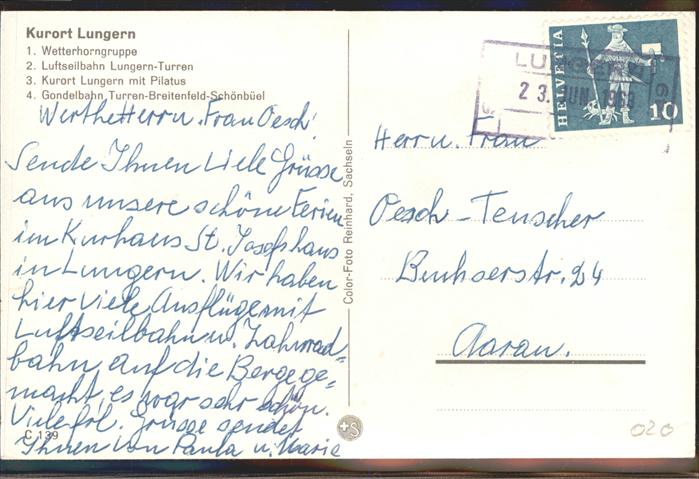 Kurort Lungern
1. Wetterhorngruppe
2. Luftseilbahn Lungern-Turren
3. Kurort Lungern mit Pilatus
4. Gondelbahn Turren-Breitenfeld-Schönbüel
Werthe Herr u. Frau Oesch!
Sende Ihnen Liebe Grüsse
aus unsere schöne Ferien
im Kurhaus St. Josefshaus
in Lungern. Wir haben
hier viele Ausflüge mit
Luftseilbahn u. Zahnrad-
bahn, auf die Berge ge-
macht, es war sehr schön.
Viele frl. Grüsse sendet
Ihnen von Paula u. Marie
C 139
Color-Foto Reinhard, Sachseln
+S
HELVETIA
10
23. JUN. 1963
Herr u. Frau
Oesch-Teuscher
Buchserstr. 24
Aarau.
020